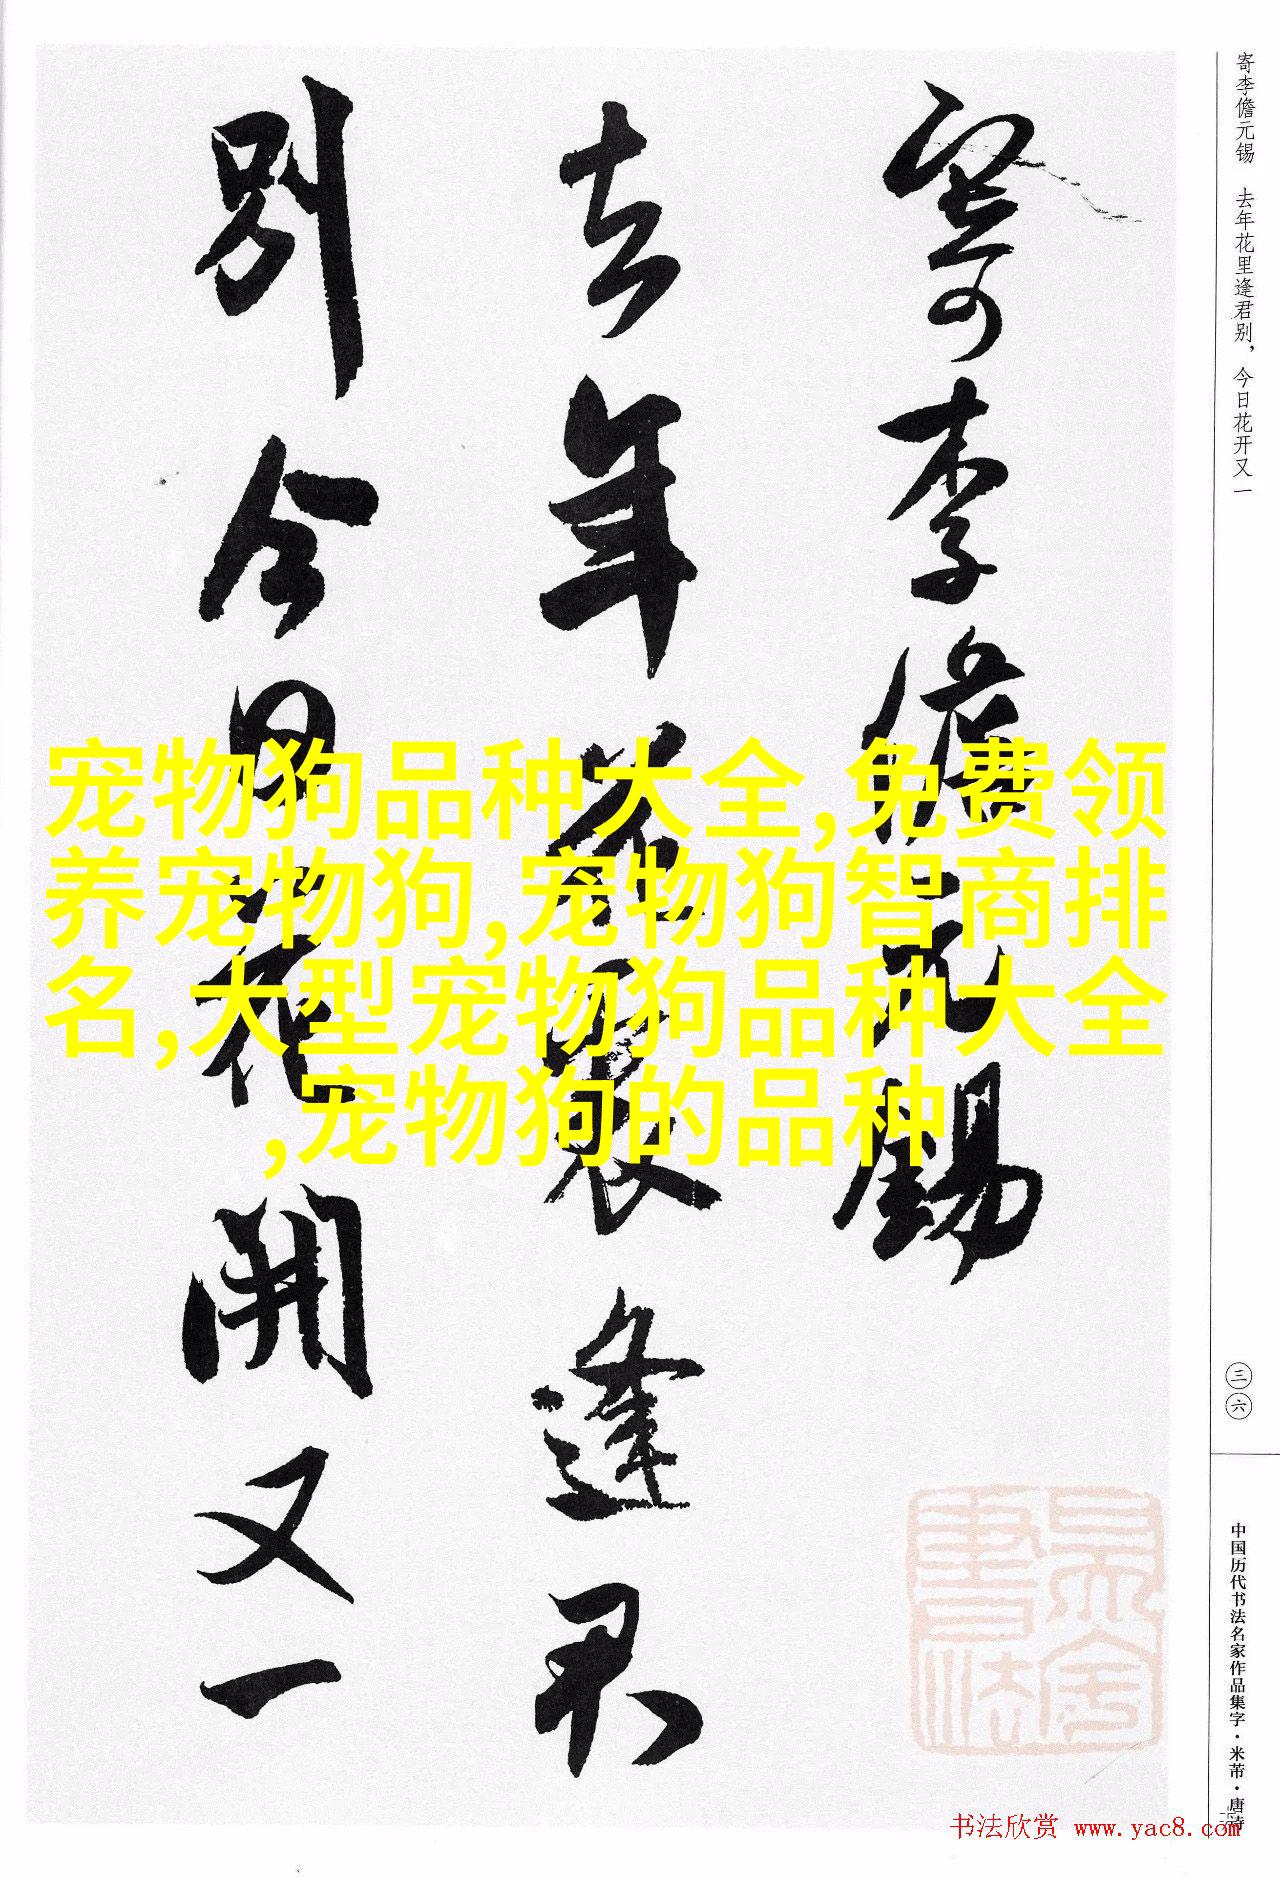 寄李儋元锡 去年花里逢君别，今日花开又一
寄李儋元錫
去年花裏逢君
別今日花開又一
宠物狗品种大全,免费领
养宠物狗,宠物狗智商排
名,大型宠物狗品种大全
,宠物狗的品种
三六
中国历代书法名家作品集字·米芾·唐诗
书法欣赏 www.yac8.com